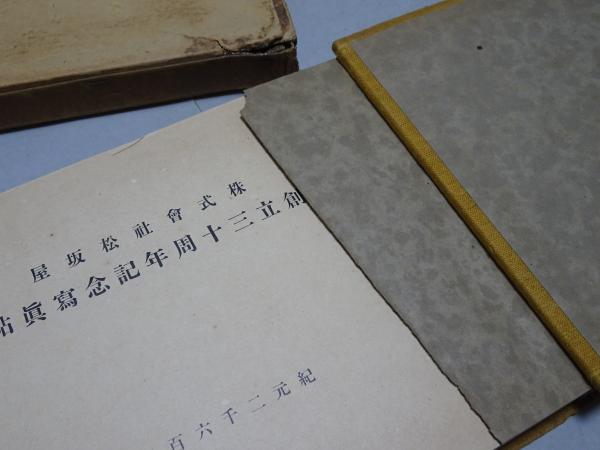 株式會社松坂屋
創立三十周年記念寫眞帖
紀元二千六百